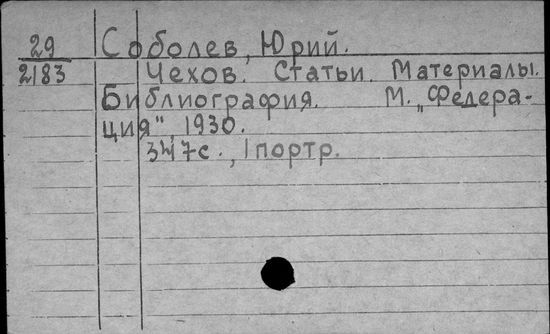 29 Соболев, Юрий.
2183 Чехов. Статьи. Материалы.
Библиография. М. „Федера-
ция", 1930.
347с., 1 портр.